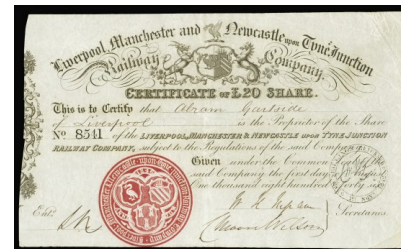 Liverpool, Manchester and Newcastle upon Tyne Junction
Railway Company.
CERTIFICATE OF £20 SHARE.
This is to Certify that Abram Gartside
of Liverpool is the Proprietor of the Share
No 8541 of the LIVERPOOL, MANCHESTER & NEWCASTLE UPON TYNE JUNCTION
RAILWAY COMPANY, subject to the Regulations of the said Company.
Given under the Common Seal of the
said Company the first day of August
One thousand eight hundred & forty six
Entd.
Secretaries